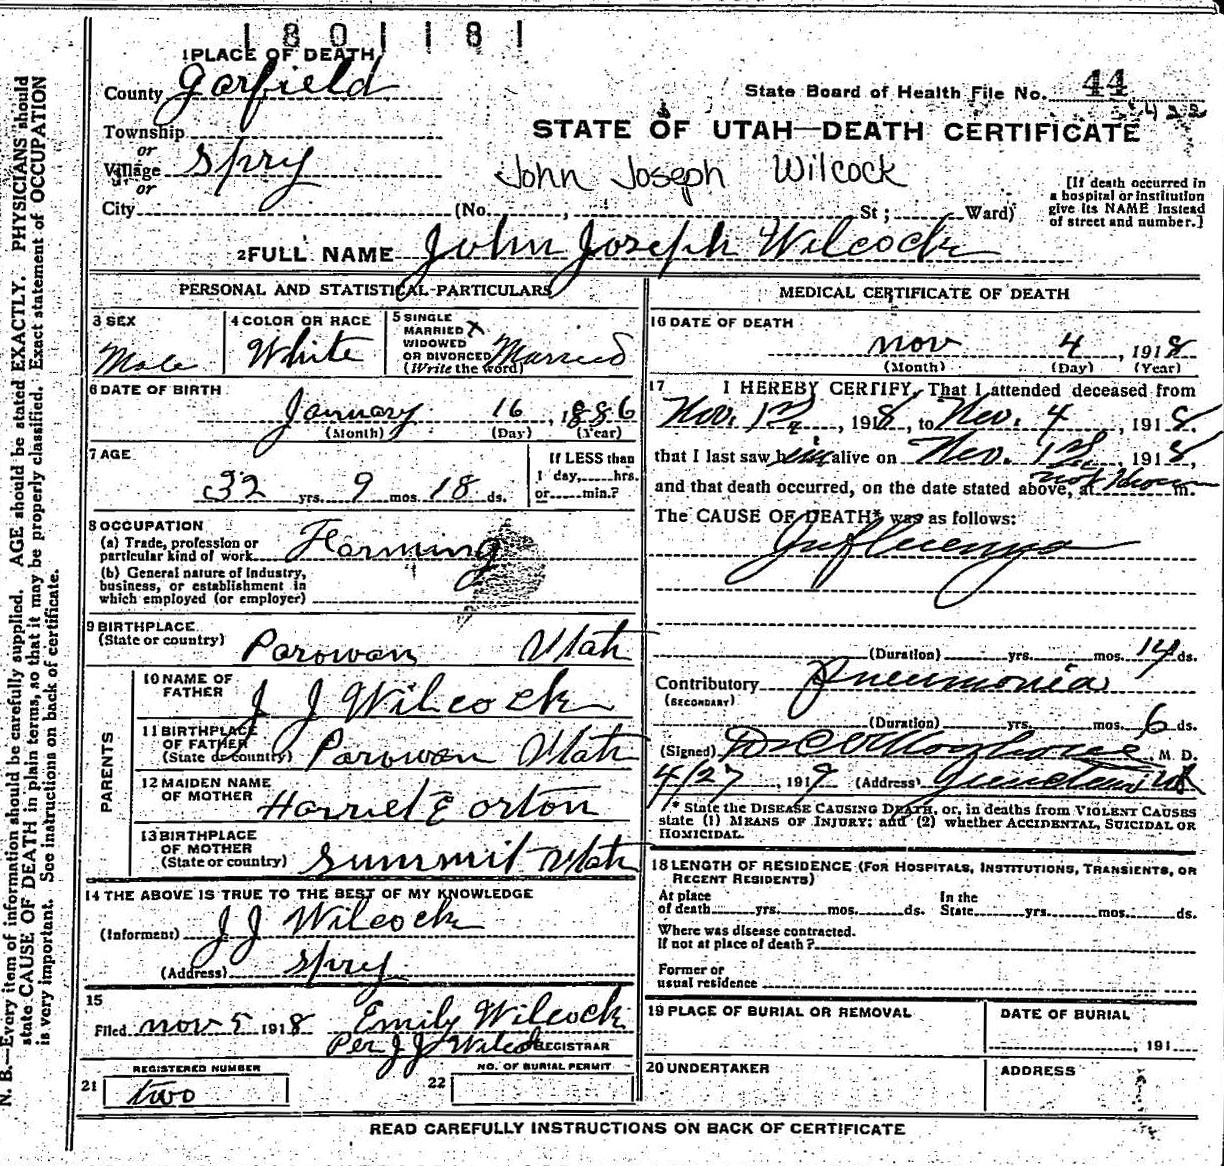 1801181
1 PLACE OF DEATH
County Garfield
State Board of Health File No. 44
Township
or
Village Spry
or
City (No. , St ; Ward)
STATE OF UTAH—DEATH CERTIFICATE
John Joseph Wilcock
[If death occurred in
a hospital or institution
give its NAME instead
of street and number.]
2 FULL NAME John Joseph Wilcock
PERSONAL AND STATISTICAL PARTICULARS
3 SEX
Male
4 COLOR OR RACE
White
5 SINGLE
MARRIED X
WIDOWED
OR DIVORCED Married
(Write the word)
6 DATE OF BIRTH
January 16, 1886
(Month) (Day) (Year)
7 AGE
32 yrs. 9 mos. 18 ds.
If LESS than
1 day, hrs.
or min.?
8 OCCUPATION
(a) Trade, profession or
particular kind of work Farming
(b) General nature of industry,
business, or establishment in
which employed (or employer)
9 BIRTHPLACE
(State or country) Parowan Utah
PARENTS
10 NAME OF
FATHER J J Wilcock
11 BIRTHPLACE
OF FATHER
(State or country) Parowan Utah
12 MAIDEN NAME
OF MOTHER Harriet E Orton
13 BIRTHPLACE
OF MOTHER
(State or country) Summit Utah
14 THE ABOVE IS TRUE TO THE BEST OF MY KNOWLEDGE
(Informent) J J Wilcock
(Address) Spry
15
Filed Nov 5 1918 Emily Wilcock
Per J J Wilcock REGISTRAR
21 REGISTERED NUMBER
two
22 NO. OF BURIAL PERMIT
MEDICAL CERTIFICATE OF DEATH
16 DATE OF DEATH
Nov 4, 1918
(Month) (Day) (Year)
17 I HEREBY CERTIFY, That I attended deceased from
Nov. 1st, 1918, to Nov. 4, 1918.
that I last saw him alive on Nov. 1st, 1918,
and that death occurred, on the date stated above, at not known m.
The CAUSE OF DEATH* was as follows:
Influenza
(Duration) yrs. mos. 14 ds.
Contributory Pneumonia
(SECONDARY)
(Duration) yrs. mos. 6 ds.
(Signed) M. D.
4/27, 1919 (Address)
* State the DISEASE CAUSING DEATH, or, in deaths from VIOLENT CAUSES
state (1) MEANS OF INJURY; and (2) whether ACCIDENTAL, SUICIDAL OR
HOMICIDAL.
18 LENGTH OF RESIDENCE (FOR HOSPITALS, INSTITUTIONS, TRANSIENTS, OR
RECENT RESIDENTS)
At place In the
of death yrs. mos. ds. State yrs. mos. ds.
Where was disease contracted.
If not at place of death?
Former or
usual residence
19 PLACE OF BURIAL OR REMOVAL
DATE OF BURIAL
, 191
20 UNDERTAKER
ADDRESS
READ CAREFULLY INSTRUCTIONS ON BACK OF CERTIFICATE
N. B.—Every item of information should be carefully supplied. AGE should be stated EXACTLY. PHYSICIANS should
state CAUSE OF DEATH in plain terms, so that it may be properly classified. Exact statement of OCCUPATION
is very important. See instructions on back of certificate.